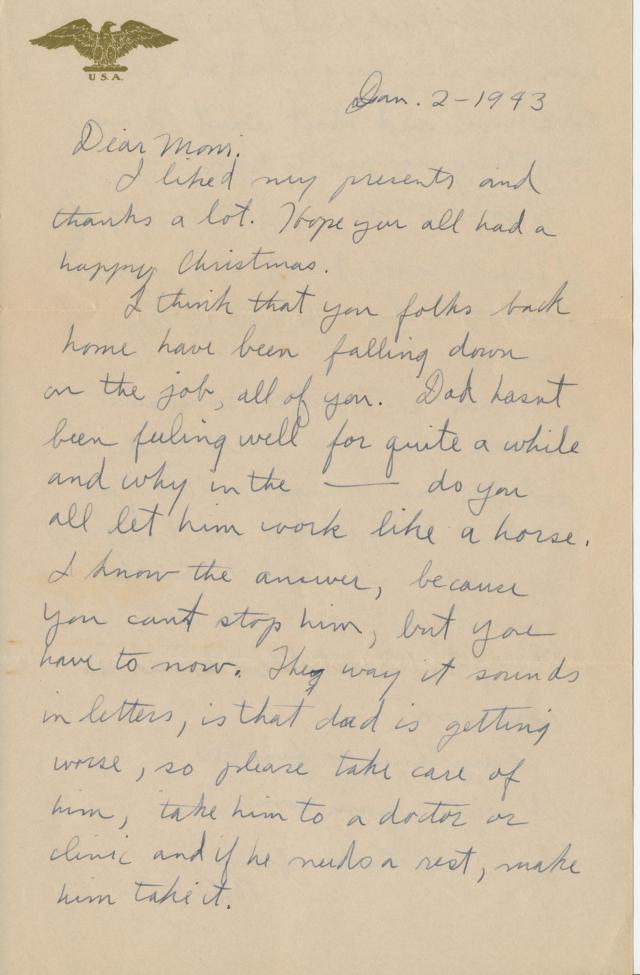 U.S.A.
Jan. 2-1943
Dear Mom:
I liked my presents and
thanks a lot. Hope you all had a
happy Christmas.
I think that you folks back
home have been falling down
on the job, all of you. Dad hasnt
been feeling well for quite a while
and why in the —— do you
all let him work like a horse.
I know the answer, because
you can't stop him, but you
have to now. The way it sounds
in letters, is that dad is getting
worse, so please take care of
him, take him to a doctor or
clinic and if he needs a rest, make
him take it.